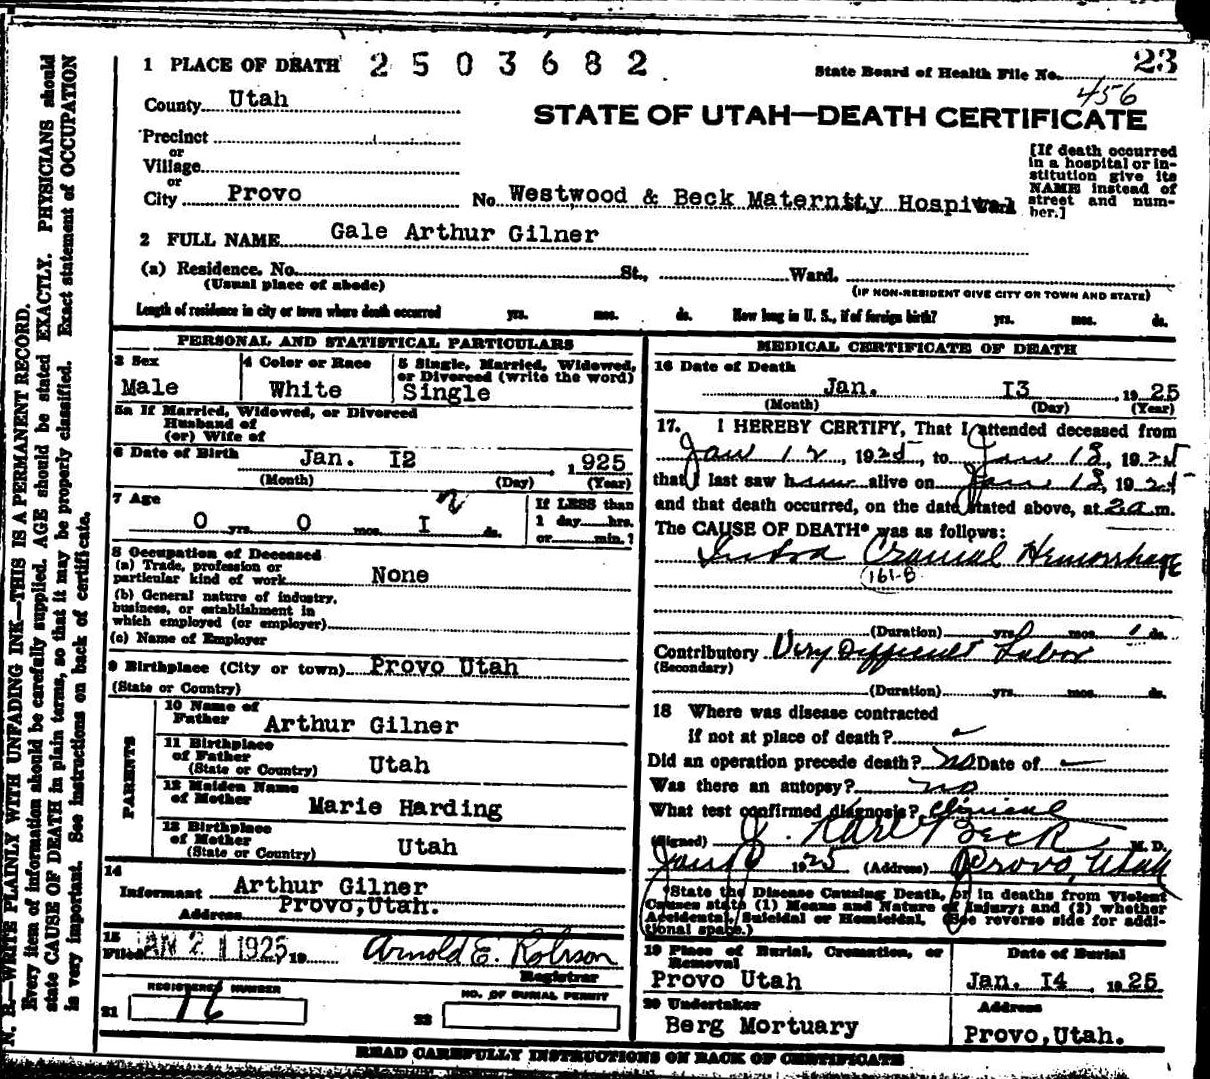 1 PLACE OF DEATH 2 5 0 3 6 8 2
State Board of Health File No. 23
456
County Utah
STATE OF UTAH—DEATH CERTIFICATE
Precinct
or
Village
or
City Provo No. Westwood & Beck Maternity Hospital Ward
[If death occurred
in a hospital or in-
stitution give its
NAME instead of
street and num-
ber.]
2 FULL NAME Gale Arthur Gilner
(a) Residence. No. St., Ward.
(Usual place of abode)
(IF NON-RESIDENT GIVE CITY OR TOWN AND STATE)
Length of residence in city or town where death occurred yrs. mos. ds. How long in U. S., if of foreign birth? yrs. mos. ds.
PERSONAL AND STATISTICAL PARTICULARS
3 Sex
Male
4 Color or Race
White
5 Single, Married, Widowed,
or Divorced (write the word)
Single
5a If Married, Widowed, or Divorced
Husband of
(or) Wife of
6 Date of Birth Jan. I2, 1925
(Month) (Day) (Year)
7 Age
0 yrs. 0 mos. I ds.
If LESS than
1 day hrs.
or min.?
8 Occupation of Deceased
(a) Trade, profession or
particular kind of work None
(b) General nature of industry,
business, or establishment in
which employed (or employer)
(c) Name of Employer
9 Birthplace (City or town) Provo Utah
(State or Country)
PARENTS
10 Name of
Father Arthur Gilner
11 Birthplace
of Father Utah
(State or Country)
12 Maiden Name
of Mother Marie Harding
13 Birthplace
of Mother Utah
(State or Country)
14
Informant Arthur Gilner
Address Provo,Utah.
15
Filed JAN 21 1925, 19 Arnold E. Robison
Registrar
REGISTERED NUMBER
21 16
NO. OF BURIAL PERMIT
22
MEDICAL CERTIFICATE OF DEATH
16 Date of Death
Jan. I3, 1925
(Month) (Day) (Year)
17. I HEREBY CERTIFY, That I attended deceased from
Jan 12, 1925, to Jan 13, 1925
that I last saw him alive on Jan 13, 1925
and that death occurred, on the date stated above, at 2 a m.
The CAUSE OF DEATH* was as follows:
Intra Cranial Hemorrhage
161-B
(Duration) yrs. mos. 1 ds.
Contributory Very Difficult Labor
(Secondary)
(Duration) yrs. mos. ds.
18 Where was disease contracted
if not at place of death?
Did an operation precede death? no Date of
Was there an autopsy? no
What test confirmed diagnosis? Clinical
(Signed) J. Karl Beck, M. D.
1925 (Address) Provo, Utah
*State the Disease Causing Death, or in deaths from Violent
Causes state (1) Means and Nature of Injury; and (2) whether
Accidental, Suicidal or Homicidal. (See reverse side for addi-
tional space.)
19 Place of Burial, Cremation, or
Removal
Provo Utah
Date of Burial
Jan. I4, 1925.
20 Undertaker
Berg Mortuary
Address
Provo,Utah.
READ CAREFULLY INSTRUCTIONS ON BACK OF CERTIFICATE
N. B.—WRITE PLAINLY WITH UNFADING INK—THIS IS A PERMANENT RECORD.
Every item of information should be carefully supplied. AGE should be stated EXACTLY. PHYSICIANS should
state CAUSE OF DEATH in plain terms, so that it may be properly classified. Exact statement of OCCUPATION
is very important. See instructions on back of certificate.